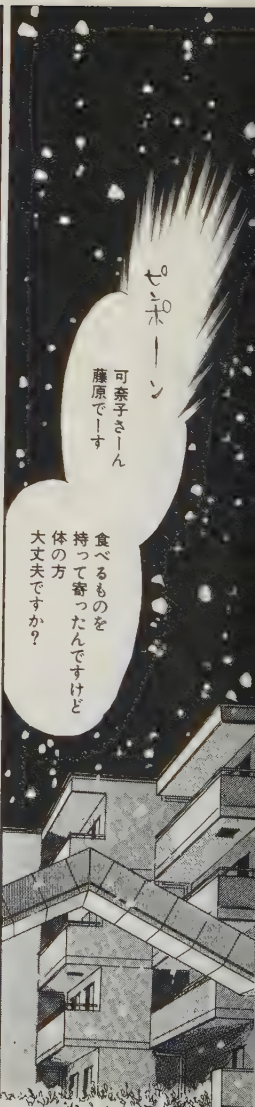 ピンポーン
可奈子さーん
藤原でーす
食べるものを
持って寄ったんですけど
体の方
大丈夫ですか？